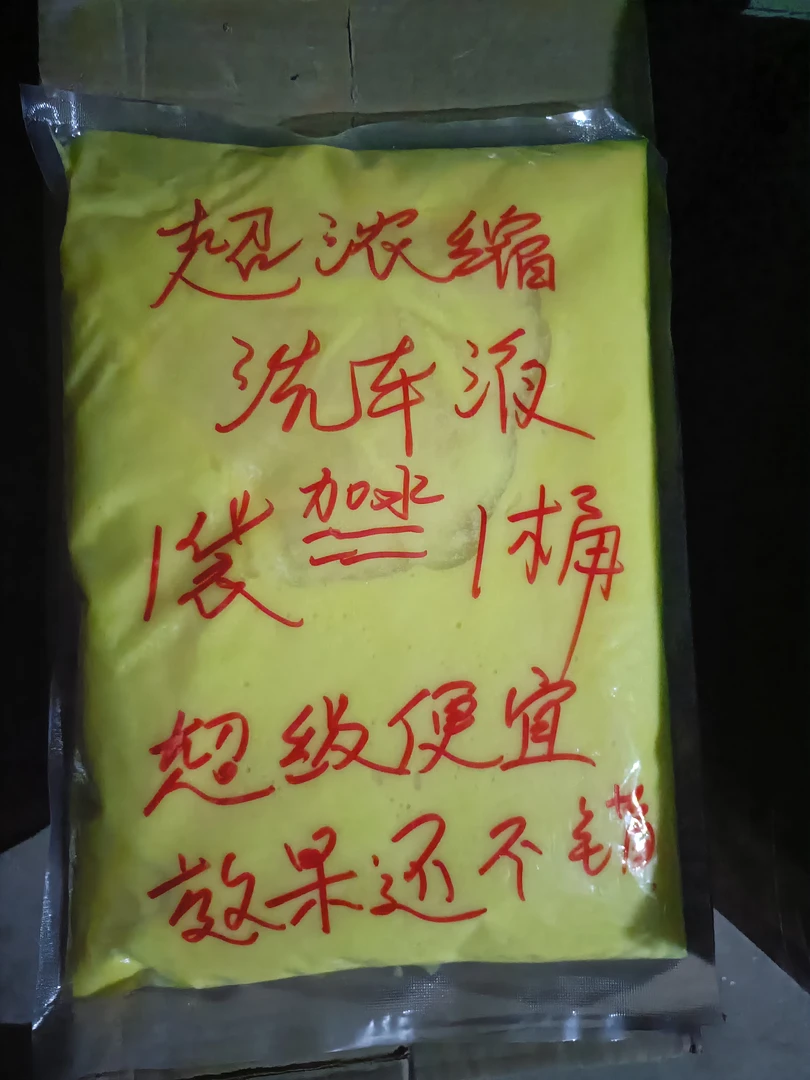 超浓缩
洗车液
1袋加水1桶
超级便宜
效果还不错